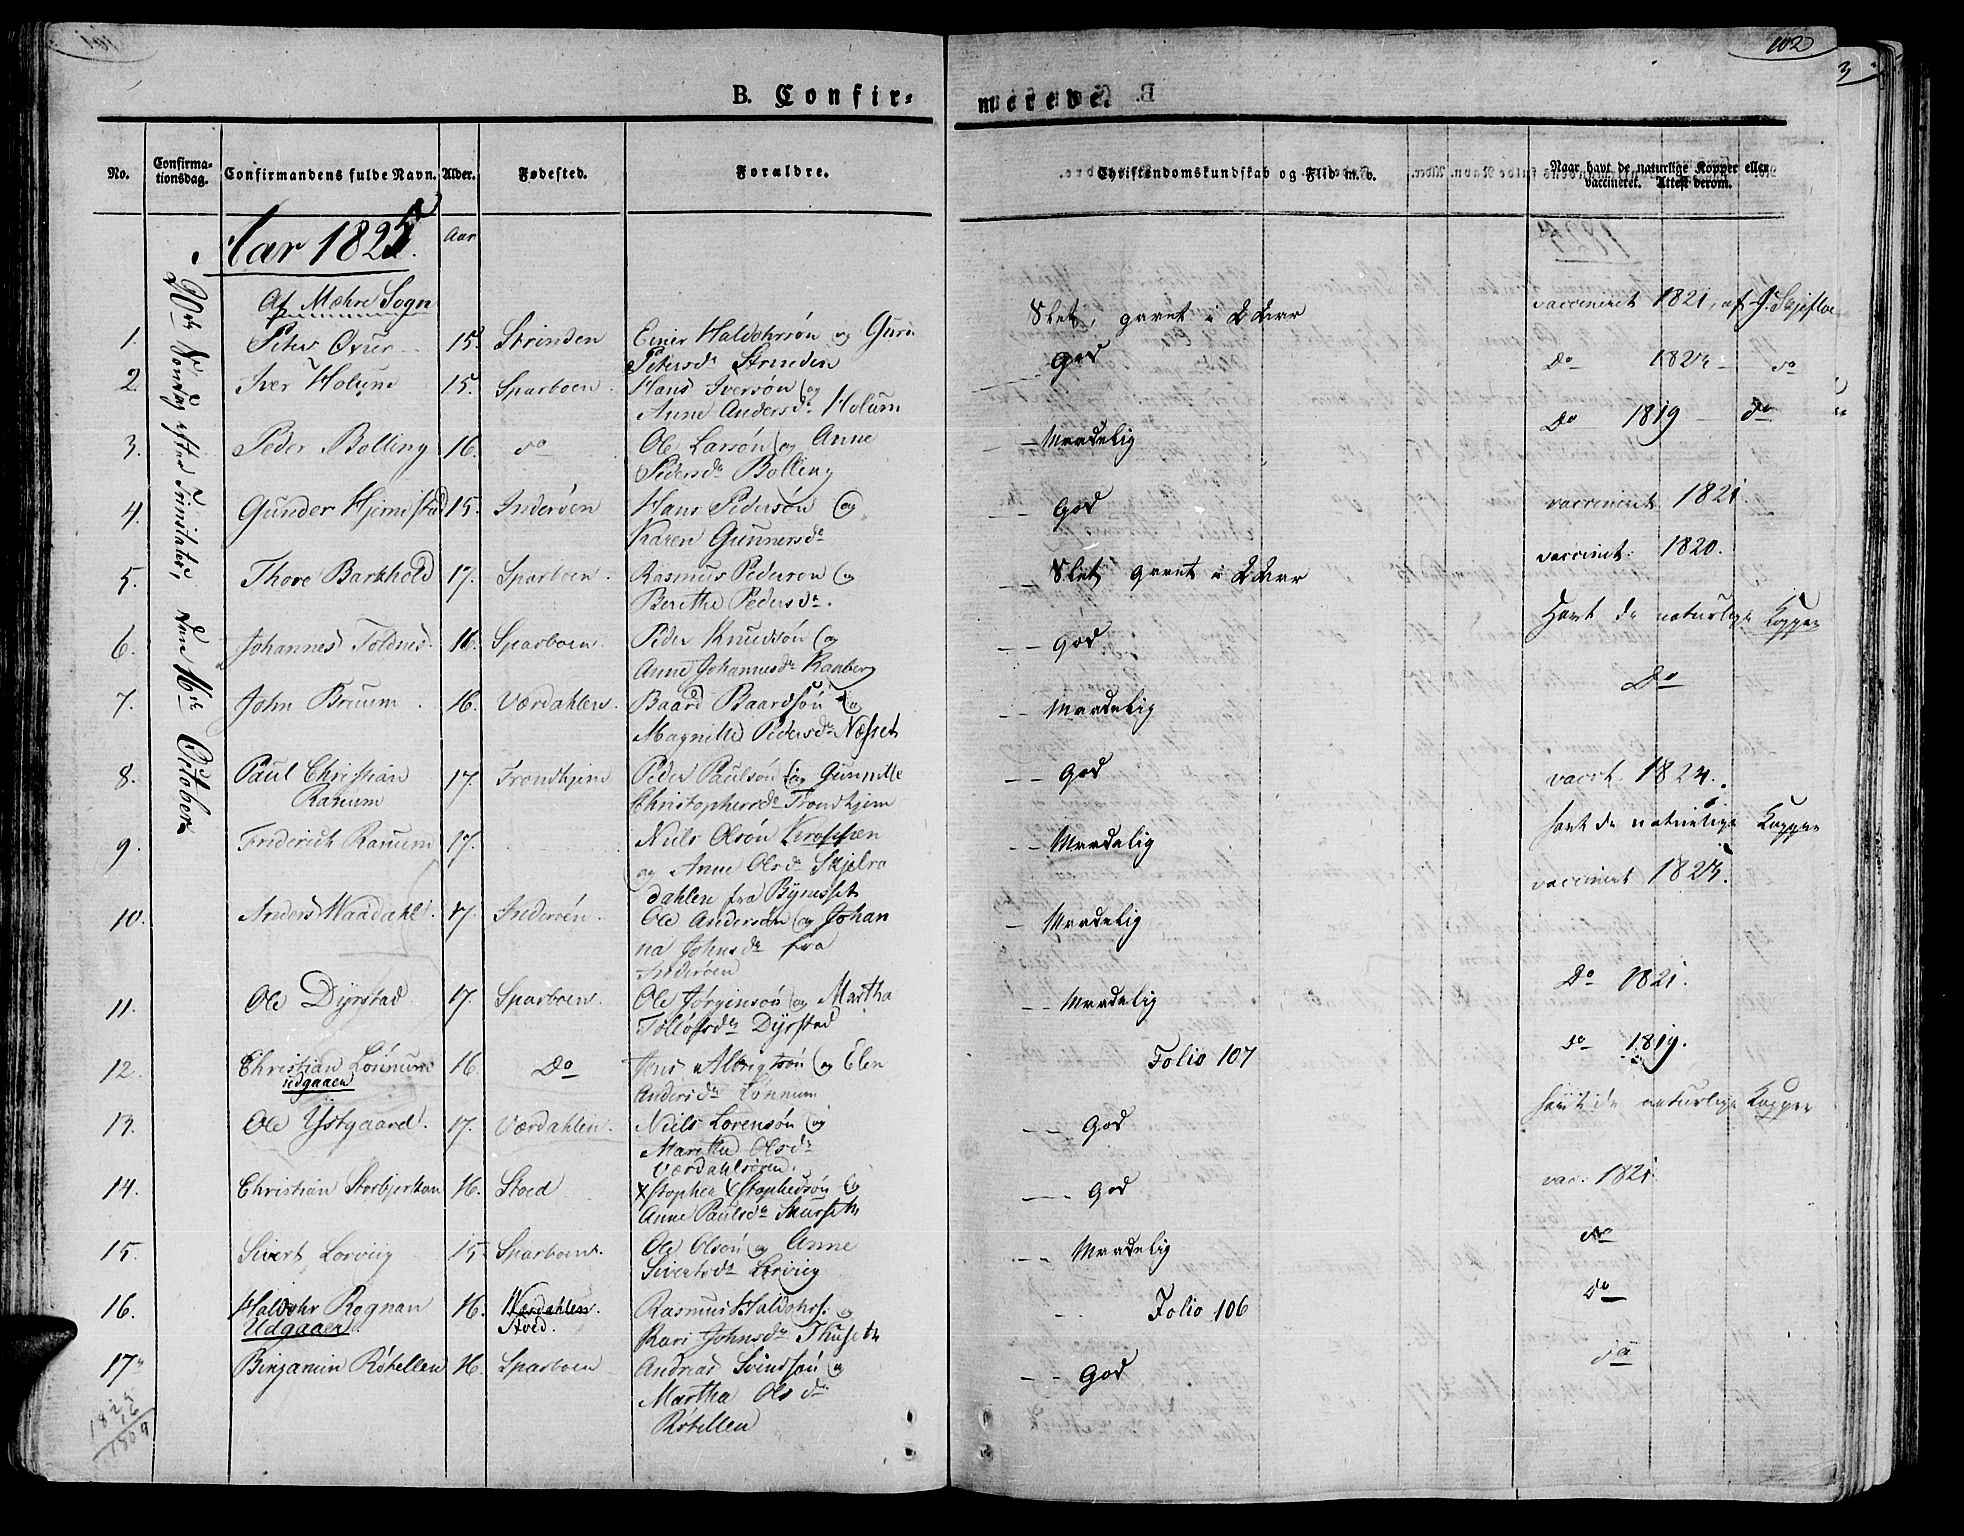 101
102
B. Confir=
merede.
No.
Confirma-
tionsdag.
Confirmandens fulde Navn.
Alder.
Fødested.
Foræeldre.
Christendomskundskab og Flid m. v.
Naar havt de naturlige Kopper eller
vaccineret. Attest derom.
Aar 1825.
Aar
Af Mæhre Sogn
Søndag efter Trinitatis, den 16de October
1. Peter Oxur 15. Strinden Einer Haldohrsøn og Guru
Petersdr Strinden
Slet, gaaet i 2 Aar
vaccineret 1821, af J. Skjefloe
2. Iver Holum 15. Sparboen. Hans Iversøn og
Anne Andersdr Holum
God
do 1824 do
3. Peder Bolling 16. do Ole Larsøn og Anne
Pedersdr Bolling
Maadelig
Do 1819 do
4. Gunder Hjemstad 15. Inderøen Hans Pedersøn og
Karen Gunnersdr
God
vaccineret 1821.
5. Thore Barkhold 17. Sparboen. Rasmus Pedersen og
Berethe Pedersdr.
Slet gaaet i 2 Aar
vaccinet. 1820.
6. Johannes Toldnes. 16. Sparboen. Peder Knudsøn og
Anne Johannesdr Raaberg
God
Havt de naturlige Kopper
7. John Bruum. 16. Værdahlen. Baard Baardsøn og
Magnille Pedersdr Næsset
Maadelig
Do
8. Paul Christian
Ranum
17. Trondhjem Peder Paulsøn og Gunnille
Christophersdr Trondhjem
God
vacct. 1824.
9. Friderich Ranum 17. Niels Olsøn Kroppen
og Anne Olsdr Skjelra
dahlen fra Bynesset
Maadelig
havt de naturlige Kopper
10. Anders Waadahl. 17. Inderøen. Ole Andersøn og Johan
na Johnsdr fra
Inderøen
Maadelig
vaccineret 1823.
11. Ole Dyrstad 17. Sparboen. Ole Jørginsøn og Martha
Tollofsdr Dyrstad
Maadelig
Do 1821.
12. Christian Lønnum
udgaaen
16. Do Jens Albrigtsøn og Elen
Andersdr Lønnum
Folio 107
do 1819.
13. Ole Ystgaard. 17. Værdahlen. Niels Lorensøn og
Marithe Olsdr
Værdahlsøren.
God
havt de naturlige Kopper
14. Christian Storbjerkan 16. Stoed Xstopher Xstophersøn og
Anne Paulsdr Skurseth
God
vac. 1821.
15. Sivert Lorvig 15 Sparboen. Ole Olsøn og Anne
Sivertsdr Lorvig
Maadelig
do
16. Haldohr Rognan
Udgaaen
16. Værdahlen.
Stoed.
Rasmus Haldohrs. og
Kari Johnsdr Thuseth
Folio 106
do
17. Benjamin Røtellen 16. Sparboen Andreas Svindsøn og
Martha Olsdr
Røtellen
God
do
1825
16
1809